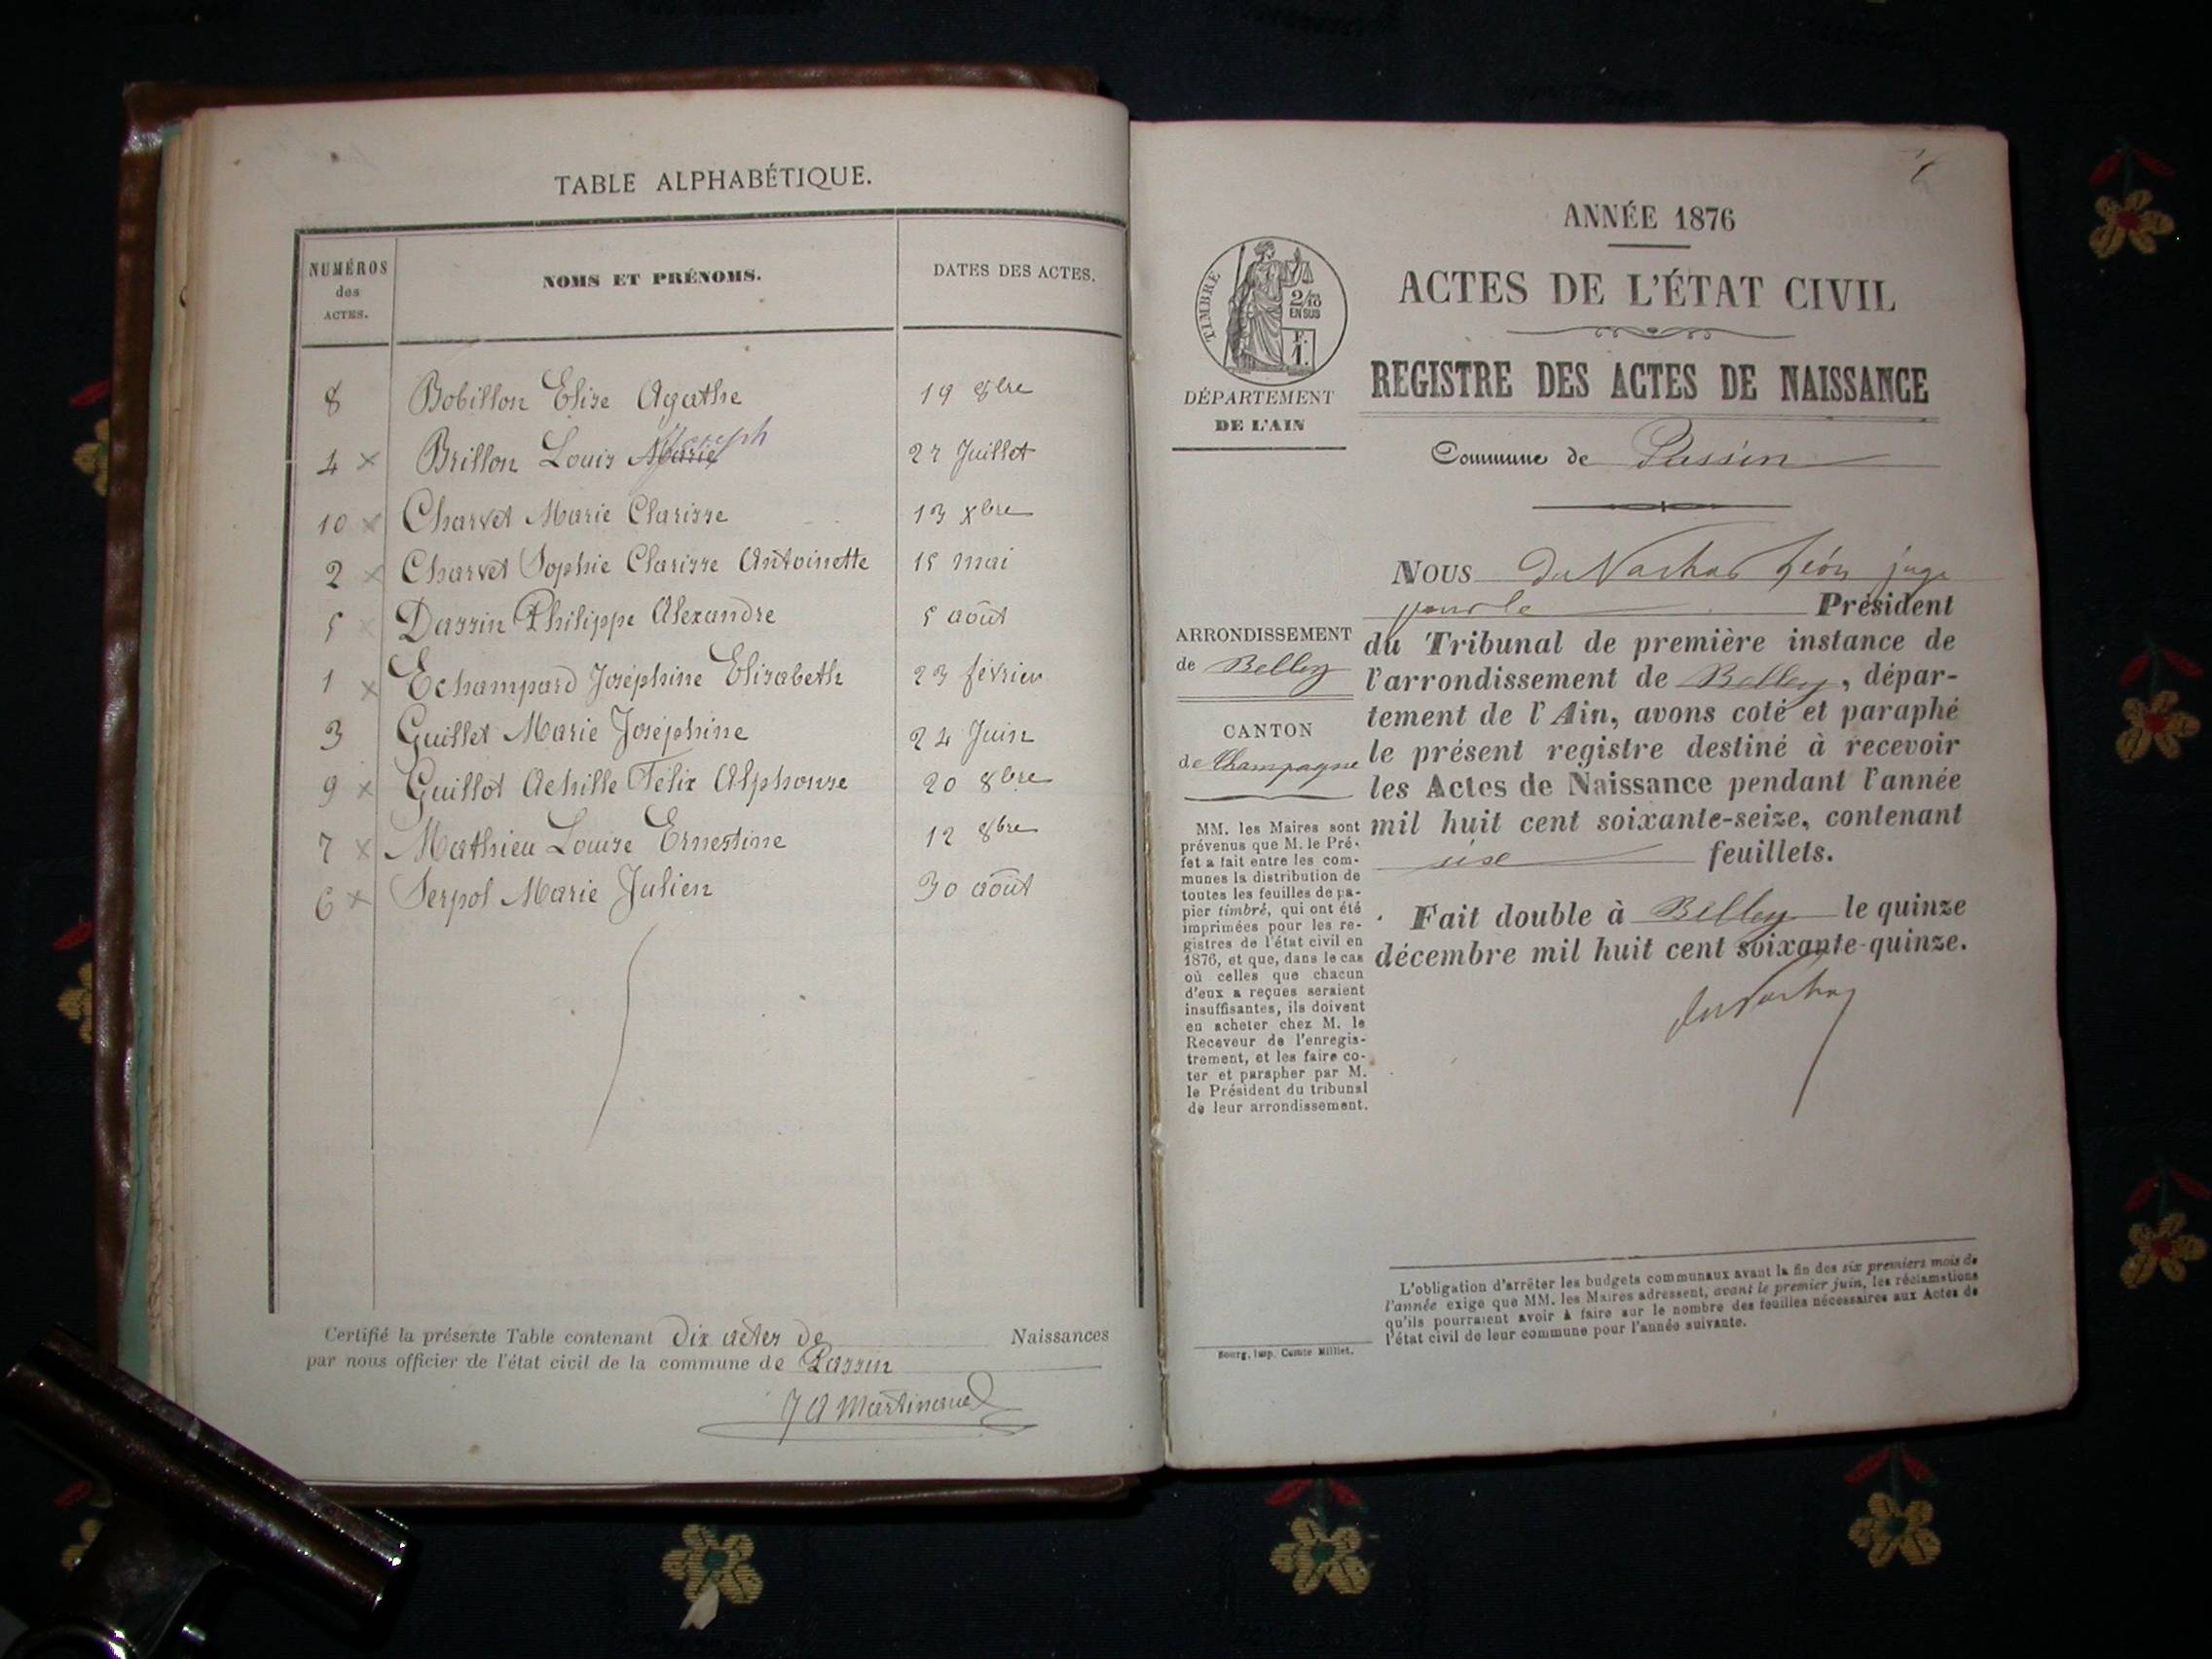 TABLE ALPHABÉTIQUE.
NUMÉROS des ACTES. NOMS ET PRÉNOMS. DATES DES ACTES.
8 Bobillon Elise Agathe 19 8bre
4 x Brillon Louis Marie Joseph 27 Juillet
10 x Charvet Marie Clarisse 13 xbre
2 x Charvet Sophie Clarisse Antoinette 15 mai
5 x Dassin Philippe Alexandre 5 août
1 x Echampard Joséphine Elisabeth 23 février
3 Guillet Marie Joséphine 24 Juin
9 x Guillot Achille Félix Alphonse 20 8bre
7 x Mathieu Louise Ernestine 12 8bre
6 x Serpol Marie Julien 30 août
Certifié la présente Table contenant dix actes de Naissances
par nous officier de l'état civil de la commune de Passin
J A Martinand
ANNÉE 1876
ACTES DE L'ÉTAT CIVIL
REGISTRE DES ACTES DE NAISSANCE
Commune de Passin
TIMBRE
2/10
EN SUS
F.
1.
DÉPARTEMENT
DE L'AIN
ARRONDISSEMENT
de Belley
CANTON
de Champagne
MM. les Maires sont
prévenus que M. le Pré-
fet a fait entre les com-
munes la distribution de
toutes les feuilles de pa-
pier timbré, qui ont été
imprimées pour les re-
gistres de l'état civil en
1876, et que, dans le cas
où celles que chacun
d'eux a reçues seraient
insuffisantes, ils doivent
en acheter chez M. le
Receveur de l'enregis-
trement, et les faire co-
ter et parapher par M.
le Président du tribunal
de leur arrondissement.
NOUS Léon juge
pour le Président
du Tribunal de première instance de
l'arrondissement de Belley, dépar-
tement de l'Ain, avons coté et paraphé
le présent registre destiné à recevoir
les Actes de Naissance pendant l'année
mil huit cent soixante-seize, contenant
six feuillets.
Fait double à Belley le quinze
décembre mil huit cent soixante-quinze.
L'obligation d'arrêter les budgets communaux avant la fin des six premiers mois de
l'année exige que MM. les Maires adressent, avant le premier juin, les réclamations
qu'ils pourraient avoir à faire sur le nombre des feuilles nécessaires aux Actes de
l'état civil de leur commune pour l'année suivante.
Bourg, Imp. Comte Milliet.